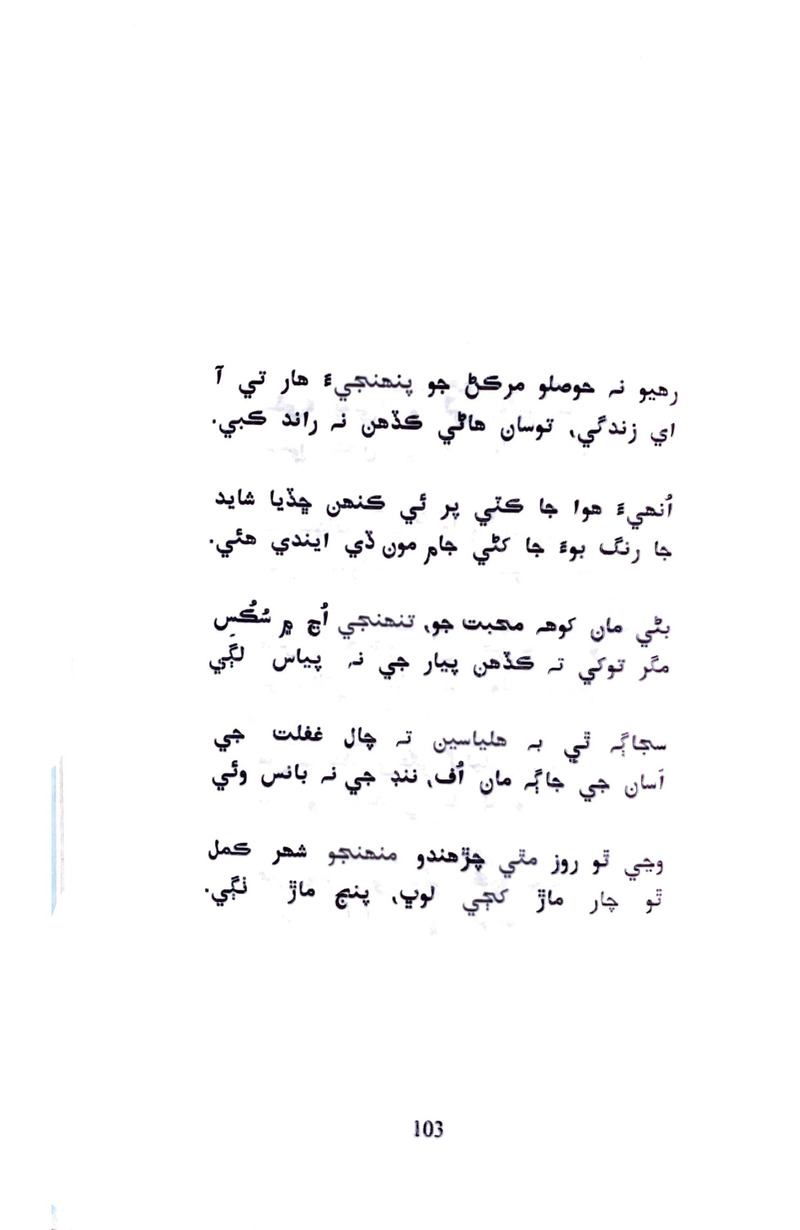 رهيو نہ حوصلو مرڪڻ جو پنهنجيءَ هار تي آ
اي زندگي، توسان هاڻي ڪڏهن نہ راند ڪبي.
اُنهيءَ هوا جا ڪٽي پر ئي ڪنهن ڇڏيا شايد
جا رنگ بوءَ جا کڻي ڄام مون ڏي ايندي هئي.
بڻي مان کوهہ محبت جو، تنهنجي اُڃ ۾ سُڪُسِ
مگر توکي تہ ڪڏهن پيار جي نہ پياس لڳي
سڄاڳہ ٿي بہ هلياسين تہ چال غفلت جي
اَسان جي جاڳہ مان اُف، ننڊ جي نہ بانس وئي
وڃي ٿو روز مٿي چڙهندو منهنجو شهر ڪمل
ٿو چار ماڙ کڄي لوڀ، پنج ماڙ ٺڳي.
103